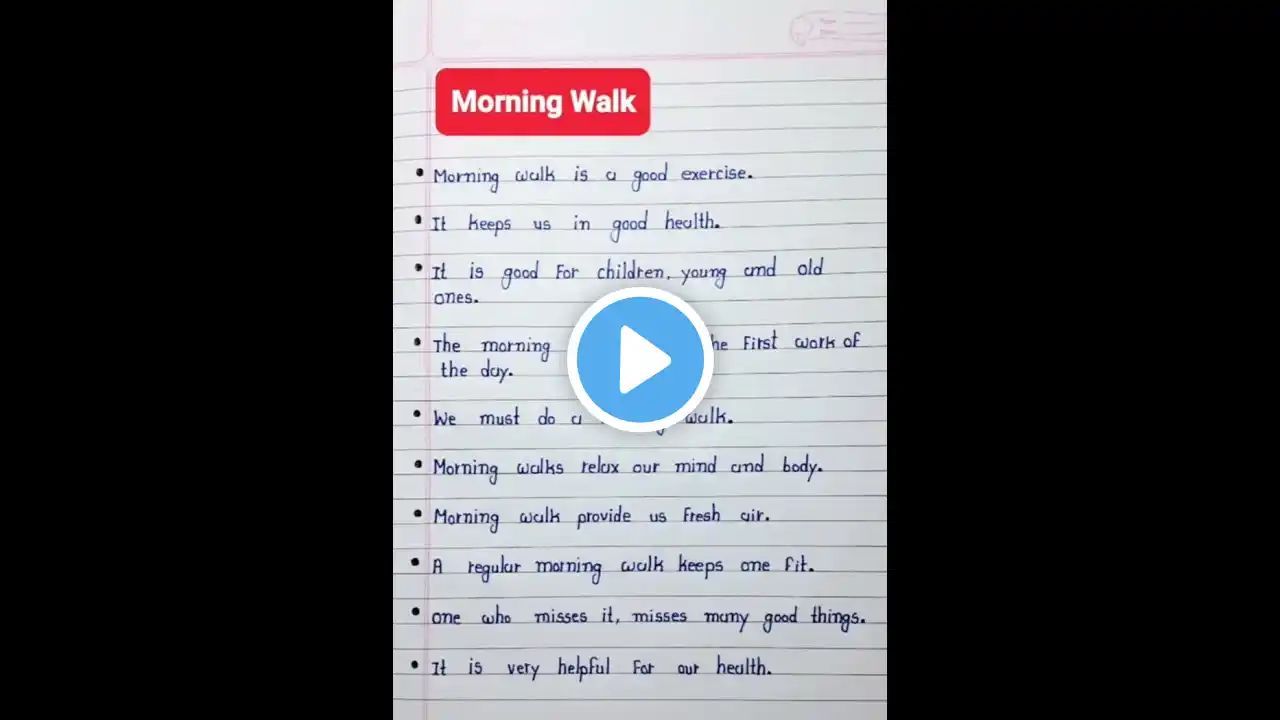 Morning Walk
Morning walk is a good exercise.
It keeps us in good health.
It is good For children, young and old
ones.
The morning First work of
the day.
We must do a walk.
Morning walks relax our mind and body.
Morning walk provide us Fresh air.
A regular morning walk keeps one Fit.
one who misses it, misses many good things.
It is very helpful For our health.